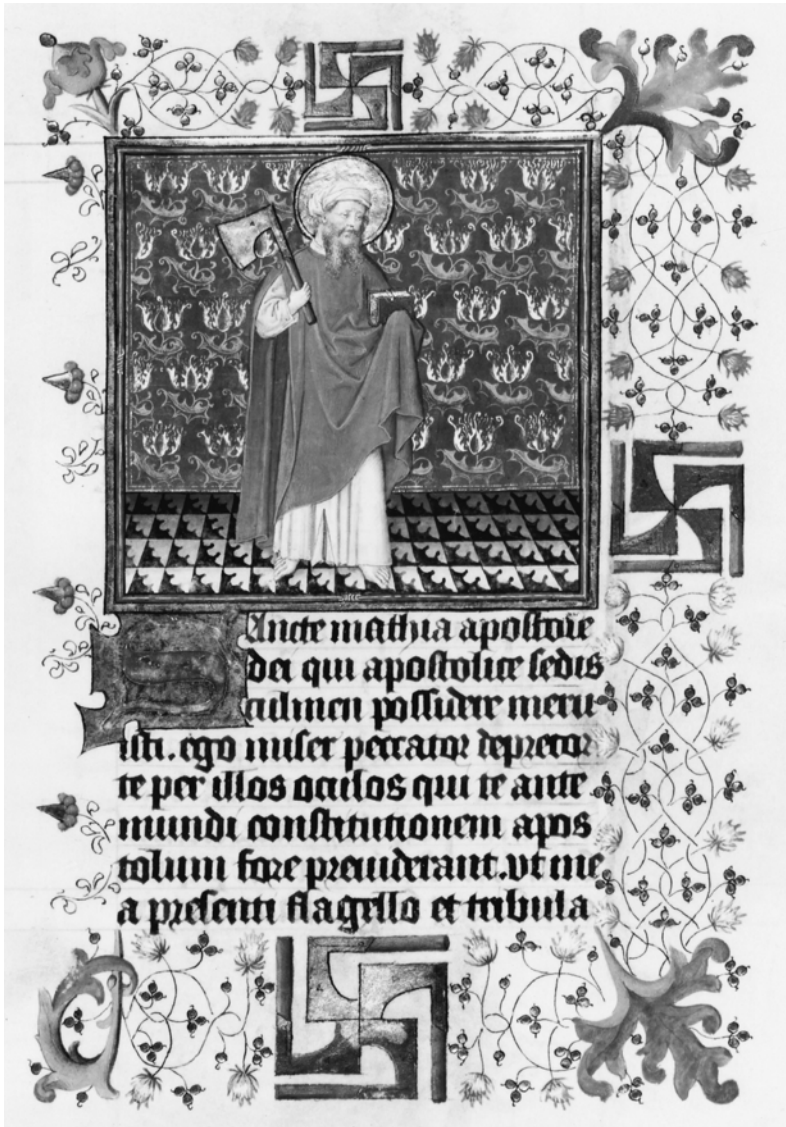 Sancte mathia apostole
dei qui apostolice sedis
culmen possidere meru
isti. ego miser peccator deprecor
te per illos oculos qui te ante
mundi constitutionem apos
tolum fore preuiderant. vt me
a presenti flagello et tribula